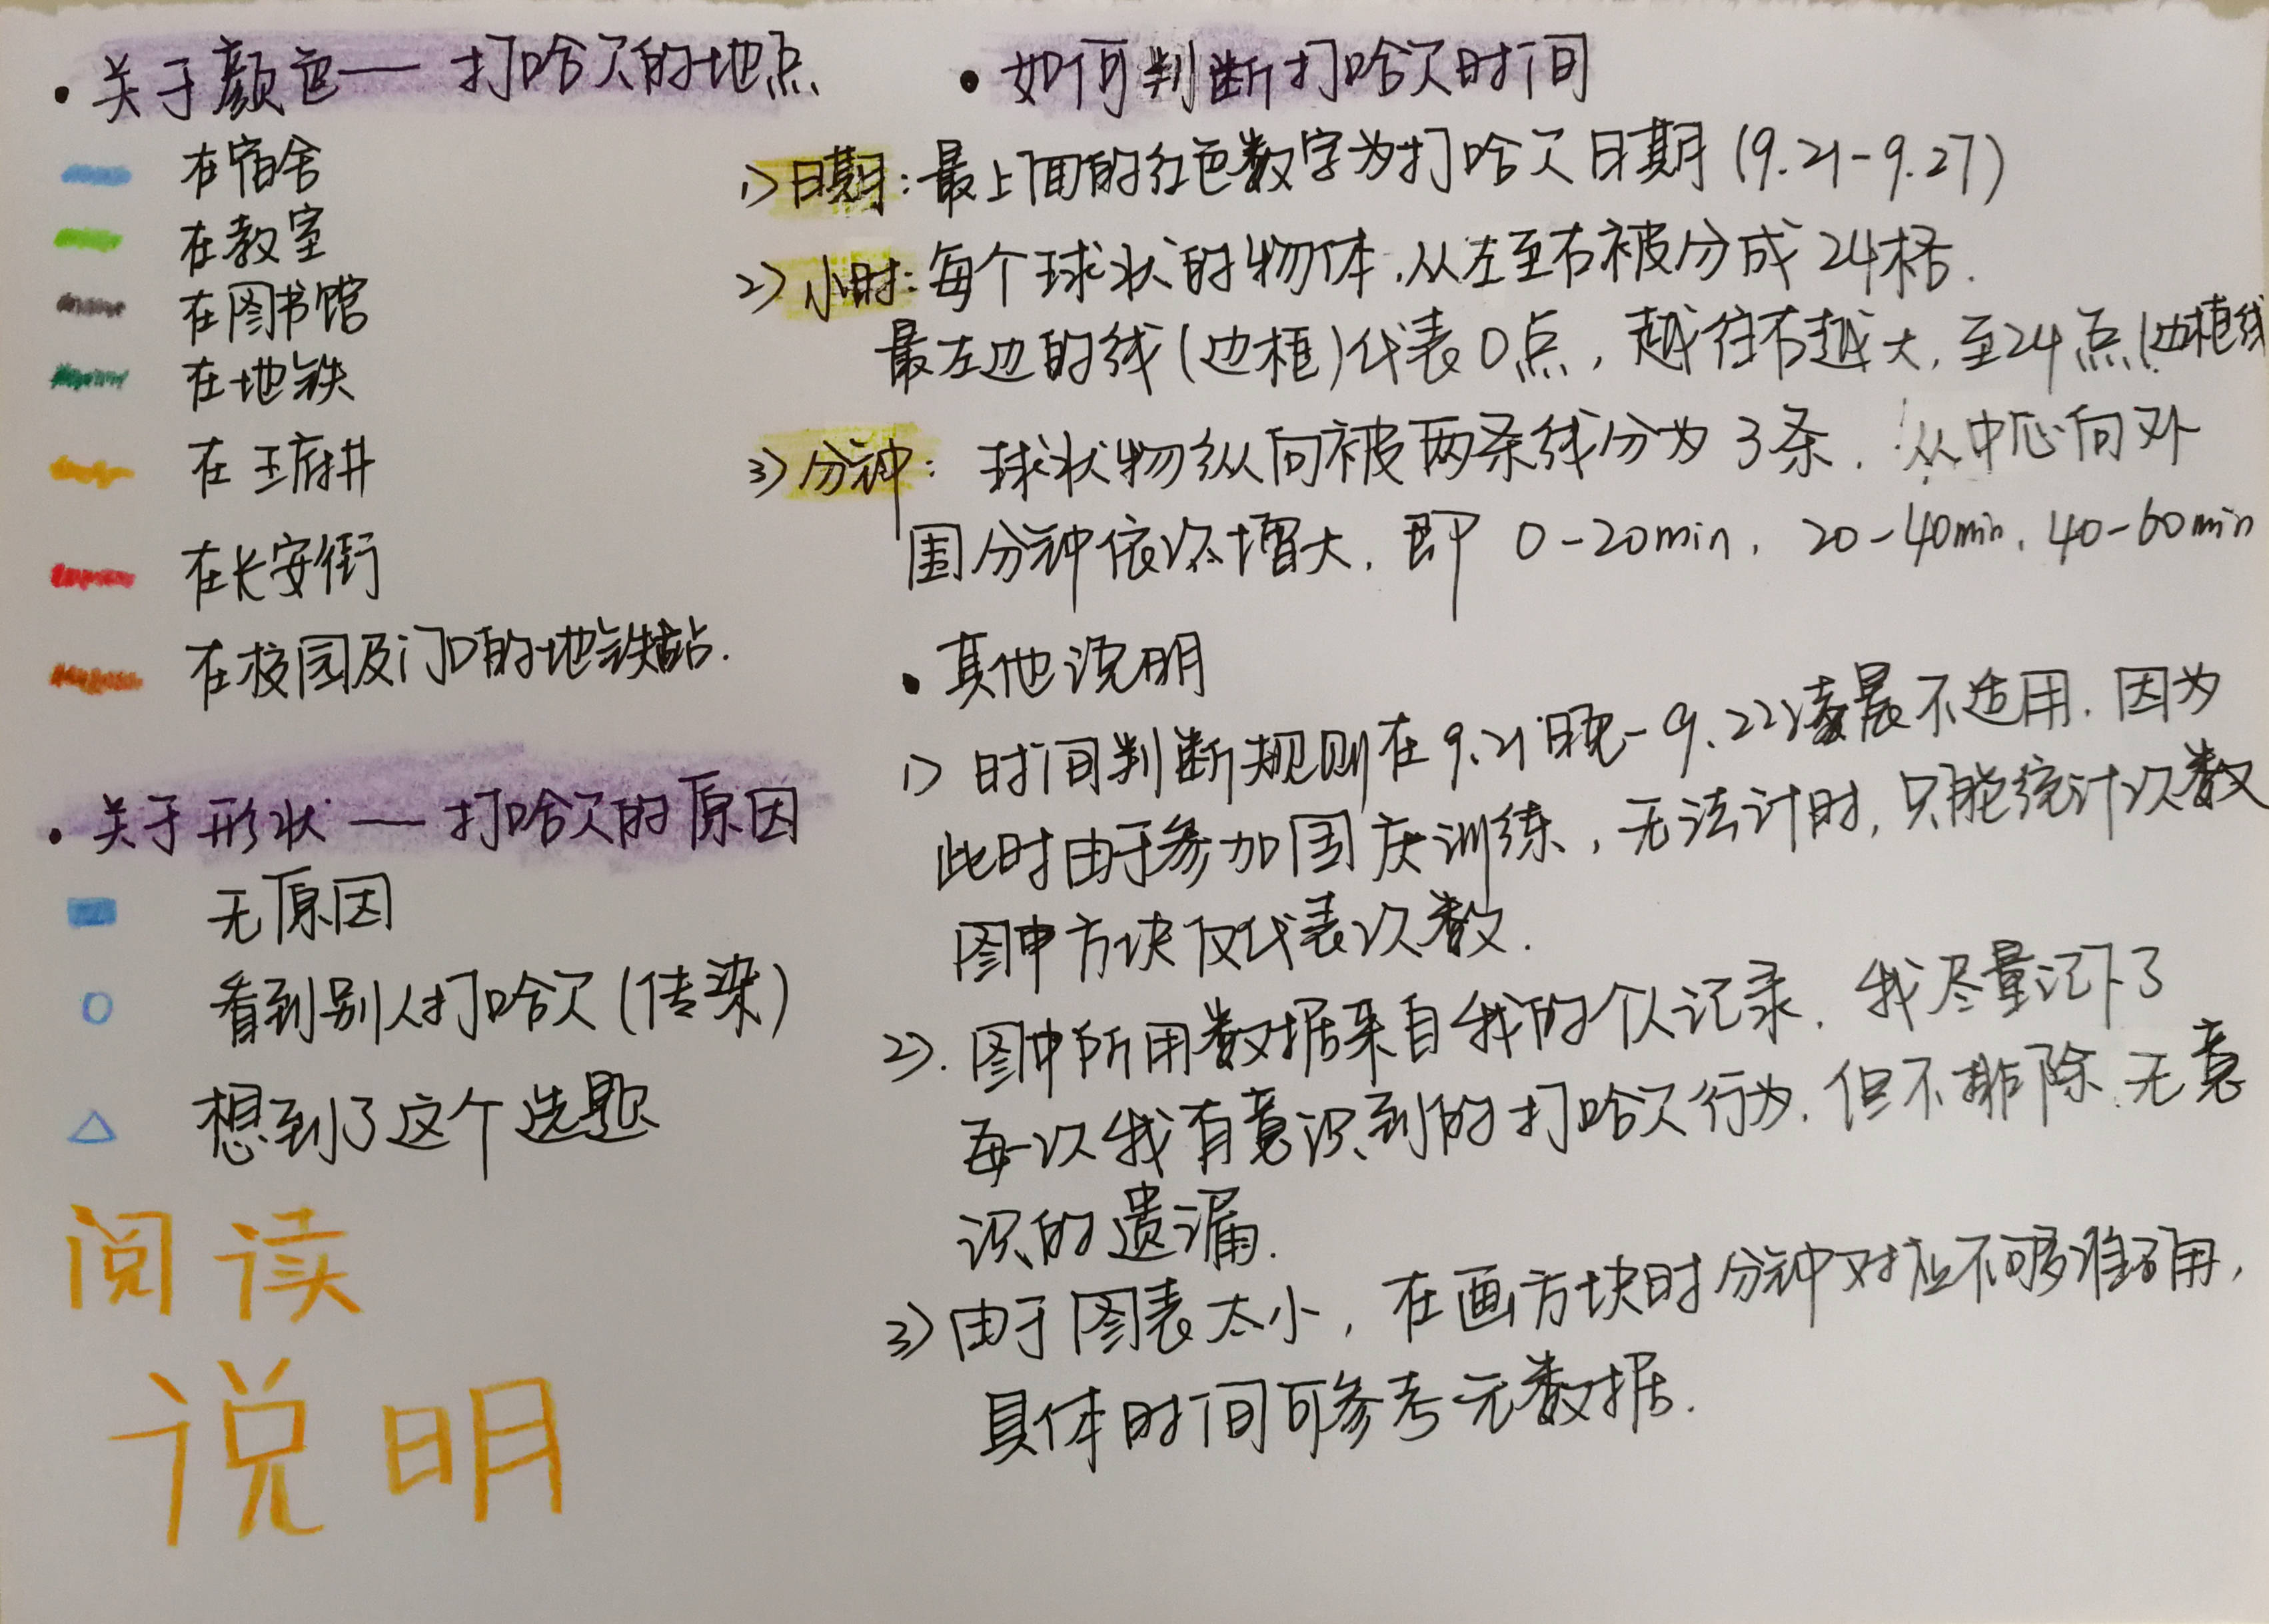 • 关于颜色 — 打哈欠的地点
在宿舍
在教室
在图书馆
在地铁
在王府井
在长安街
在校园及门口的地铁站.
• 关于形状 — 打哈欠的原因
无原因
看到别人打哈欠(传染)
想到了这个选题
阅读
说明
• 如何判断打哈欠时间
1) 日期: 最上面的红色数字为打哈欠日期 (9.21-9.27)
2) 小时: 每个球状的物体, 从左至右被分成24格.
最左边的线(边框)代表0点, 越往右越大, 至24点(边框线
3) 分钟: 球状物纵向被两条线分为3条, 从中心向外
围分钟依次增大, 即 0-20min, 20-40min, 40-60min
• 其他说明
1) 时间判断规则在9.21晚-9.22凌晨不适用. 因为
此时由于参加国庆训练, 无法计时, 只能统计次数
图中方块仅代表次数.
2). 图中所用数据来自我的个人记录, 我尽量记下了
每一次我有意识到的打哈欠行为, 但不排除无意
识的遗漏.
3) 由于图表太小, 在画方块时分钟对应不够准确,
具体时间可参考元数据.